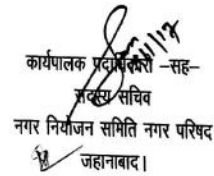 कार्यपालक पदाधिकारी –सह–
सदस्य सचिव
नगर नियोजन समिति नगर परिषद
जहानाबाद।